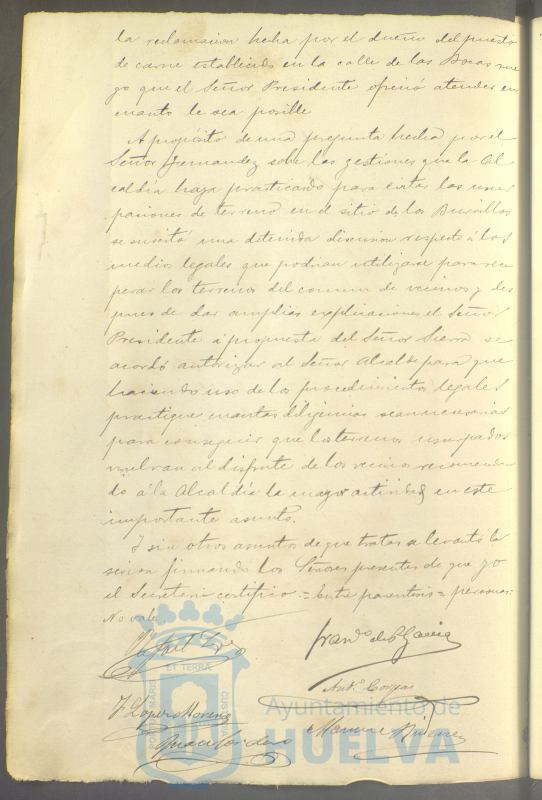 la reclamacion hecha por el dueño del puesto
de carne establecido en la calle de las Bocas rue
go que el Señor Presidente ofreció atender en
cuanto le sea posible
A propósito de una pregunta hecha por el
Señor Hernandez sobre las gestiones que la Al
caldía haya practicado para evitar las usur
paciones de terreno en el sitio de los
se suscitó una detenida discusion respecto á los
medios legales que podrian utilizarse para recu
perar los terrenos del comun de vecinos y des
pues de dar amplias explicaciones el Señor
Presidente á propuesta del Señor Sierra se
acordó autorizar al Señor Alcalde para que
haciendo uso de los procedimientos legales
practique cuantas diligencias sean necesarias
para conseguir que los terrenos usurpados
vuelvan al disfrute de los vecinos recomendan
do á la Alcaldía la mayor actividad en este
importante asunto.
Y sin otros asuntos de que tratar se levantó la
sesion firmando los Señores presentes de que yo
el Secretario certifico = Entre parentesis = personas:
No vale.
Franco de P García
Anto
J. Lopez Moreno
Manuel
ET TERRÆ
PORTUS MARIS
CUSTODIA
Ayuntamiento de
HUELVA